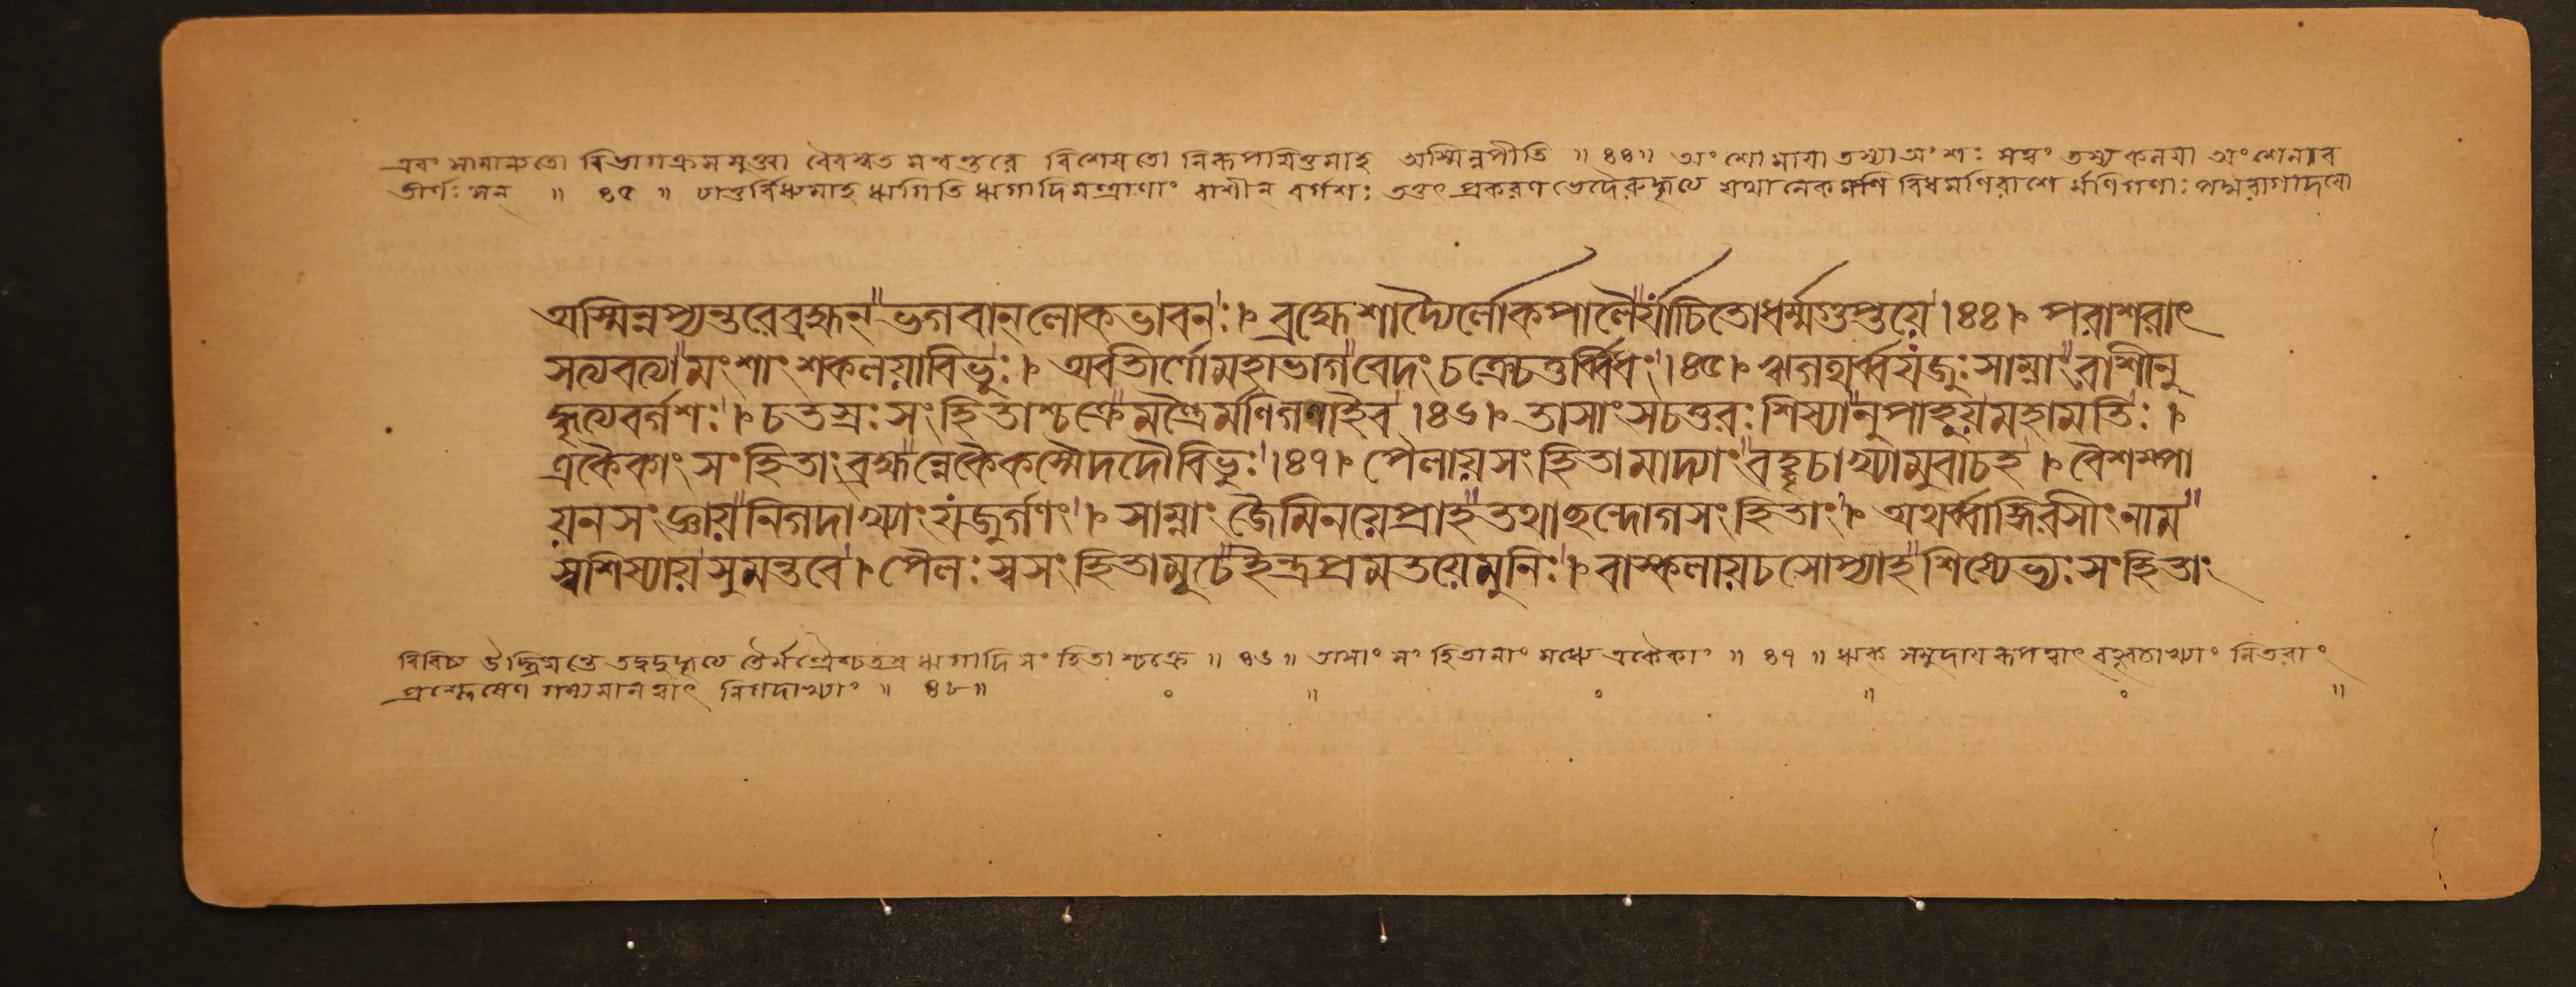 এবং সামান্যতো বিভাগক্রমমুক্ত্বা বৈবস্বত মন্বন্তরে বিশেষতো নিরূপয়িতুমাহ অস্মিন্নপীতি ॥ ৪৪॥ অংশো মায়া তস্যা অংশঃ সত্ত্বং তস্য কলয়া অংশেনাব
তীর্ণঃ সন্ ॥ ৪৫ ॥ চাতুর্বিধ্যমাহ ঋগিতি ঋগাদিমন্ত্রাণাং রাশীন্ বর্গশঃ তত্তৎ প্রকরণ ভেদৈরুদ্ধৃত্য যথানেকমণি বিধমণিরাশে র্মণিগণাঃ পদ্মরাগাদয়ো
অস্মিন্নপ্যন্তরেব্রহ্মন্ভগবান্লোকভাবনঃ। ব্রহ্মেশাদ্যৈর্লোকপালৈর্যাচিতোধর্ম্মগুপ্তয়ে।৪৪। পরাশরাৎ
সত্যবত্যামংশাংশকলয়াবিভুঃ। অবতীর্ণোমহাভাগবেদংচক্রেচতুর্ব্বিধং।৪৫। ঋগথর্ব্বযজুঃসাম্নাংরাশীনু
দ্ধৃত্যবর্গশঃ। চতস্রঃসংহিতাশ্চক্রেমন্ত্রৈর্মণিগণাইব।৪৬। তাসাংসচতুরঃশিষ্যানুপাহূয়মহামতিঃ।
একৈকাংসংহিতাংব্রহ্মন্নেকৈকস্মৈদদৌবিভুঃ।৪৭। পৈলায়সংহিতামাদ্যাংবহ্বৃচাখ্যামুবাচহ। বৈশম্পা
য়নসংজ্ঞায়নিগদাখ্যাংযজুর্গণং। সাম্নাংজৈমিনয়েপ্রাহতথাছন্দোগসংহিতাং। অথর্ব্বাঙ্গিরসীংনাম
স্বশিষ্যায়সুমন্তবে। পৈলঃস্বসংহিতামূচেইন্দ্রপ্রমতয়েমুনিঃ। বাস্কলায়চসোপ্যাহশিষ্যেভ্যঃসংহিতাং
বিবিচ্য উদ্ধ্রিয়ন্তে তদ্বদুদ্ধৃত্য তৈর্মন্ত্রৈশ্চতস্র ঋগাদি সংহিতাশ্চক্রে ॥ ৪৬ ॥ তাসাং সংহিতানাং মধ্যে একৈকাং ॥ ৪৭ ॥ ঋক্ সমুদায়রূপত্বাৎ বহ্বৃচাখ্যাং নিতরাং
প্রশ্লেষেণ গদ্যমানত্বাৎ নিগদাখ্যাং ॥ ৪৮॥ ॰ ॥ ॰ ॥ ॰ ॥